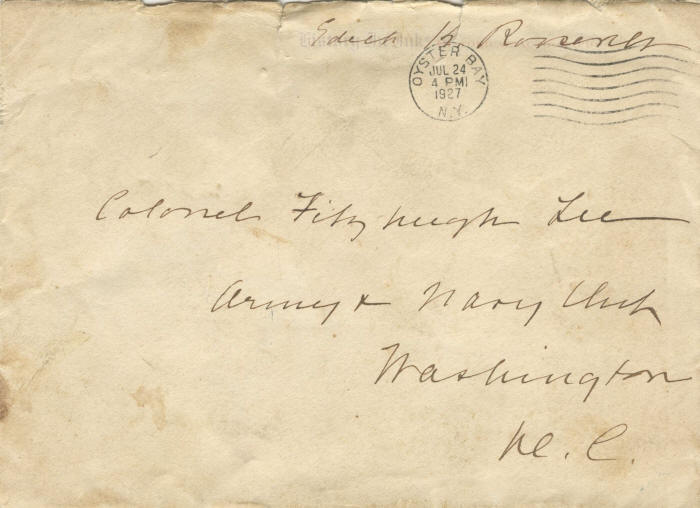 Edith K Roosevelt
OYSTER BAY
JUL 24
4 PM
1927
N.Y.
Colonel Fitzhugh Lee
Army & Navy Club
Washington
D. C.